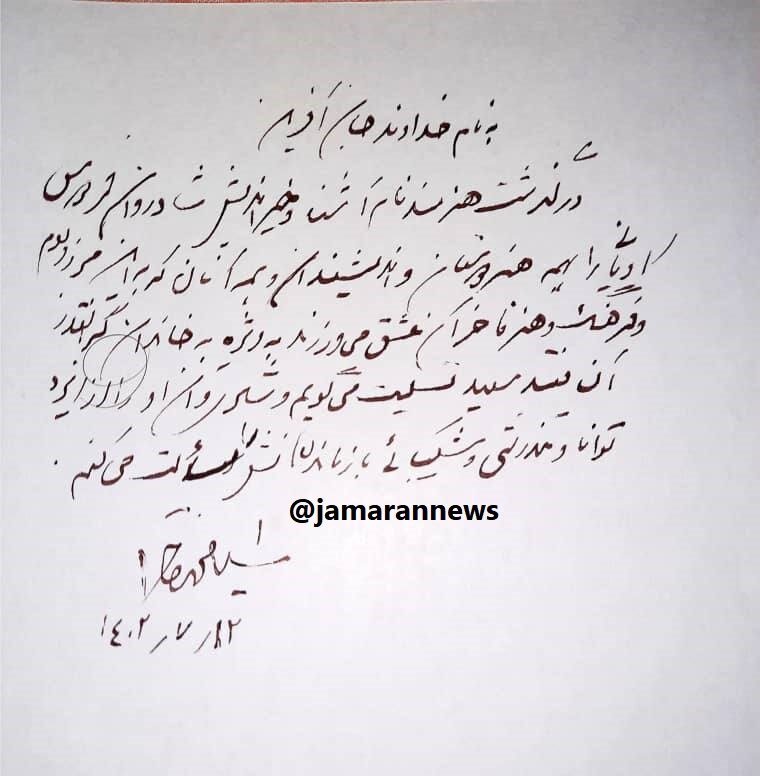 به نام خداوند جان آفرین
درگذشت هنرمند نام آشنا و خیراندیش شادروان فردوس
کاویانی را به همه هنردوستان و اندیشمندان و همه آنان که به ایران مرز و بوم
و فرهنگ و هنر فاخر آن عشق می‌ورزند به ویژه به خاندان گرانقدر
آن فقید سعید تسلیت می‌گویم و شادی روان او را از ایزد
توانا و تندرستی و شکیبائی بازماندگانش را مسألت می‌کنم.
سید محمد خاتمی
۱۴۰۲/۷/۲۲
@jamarannews